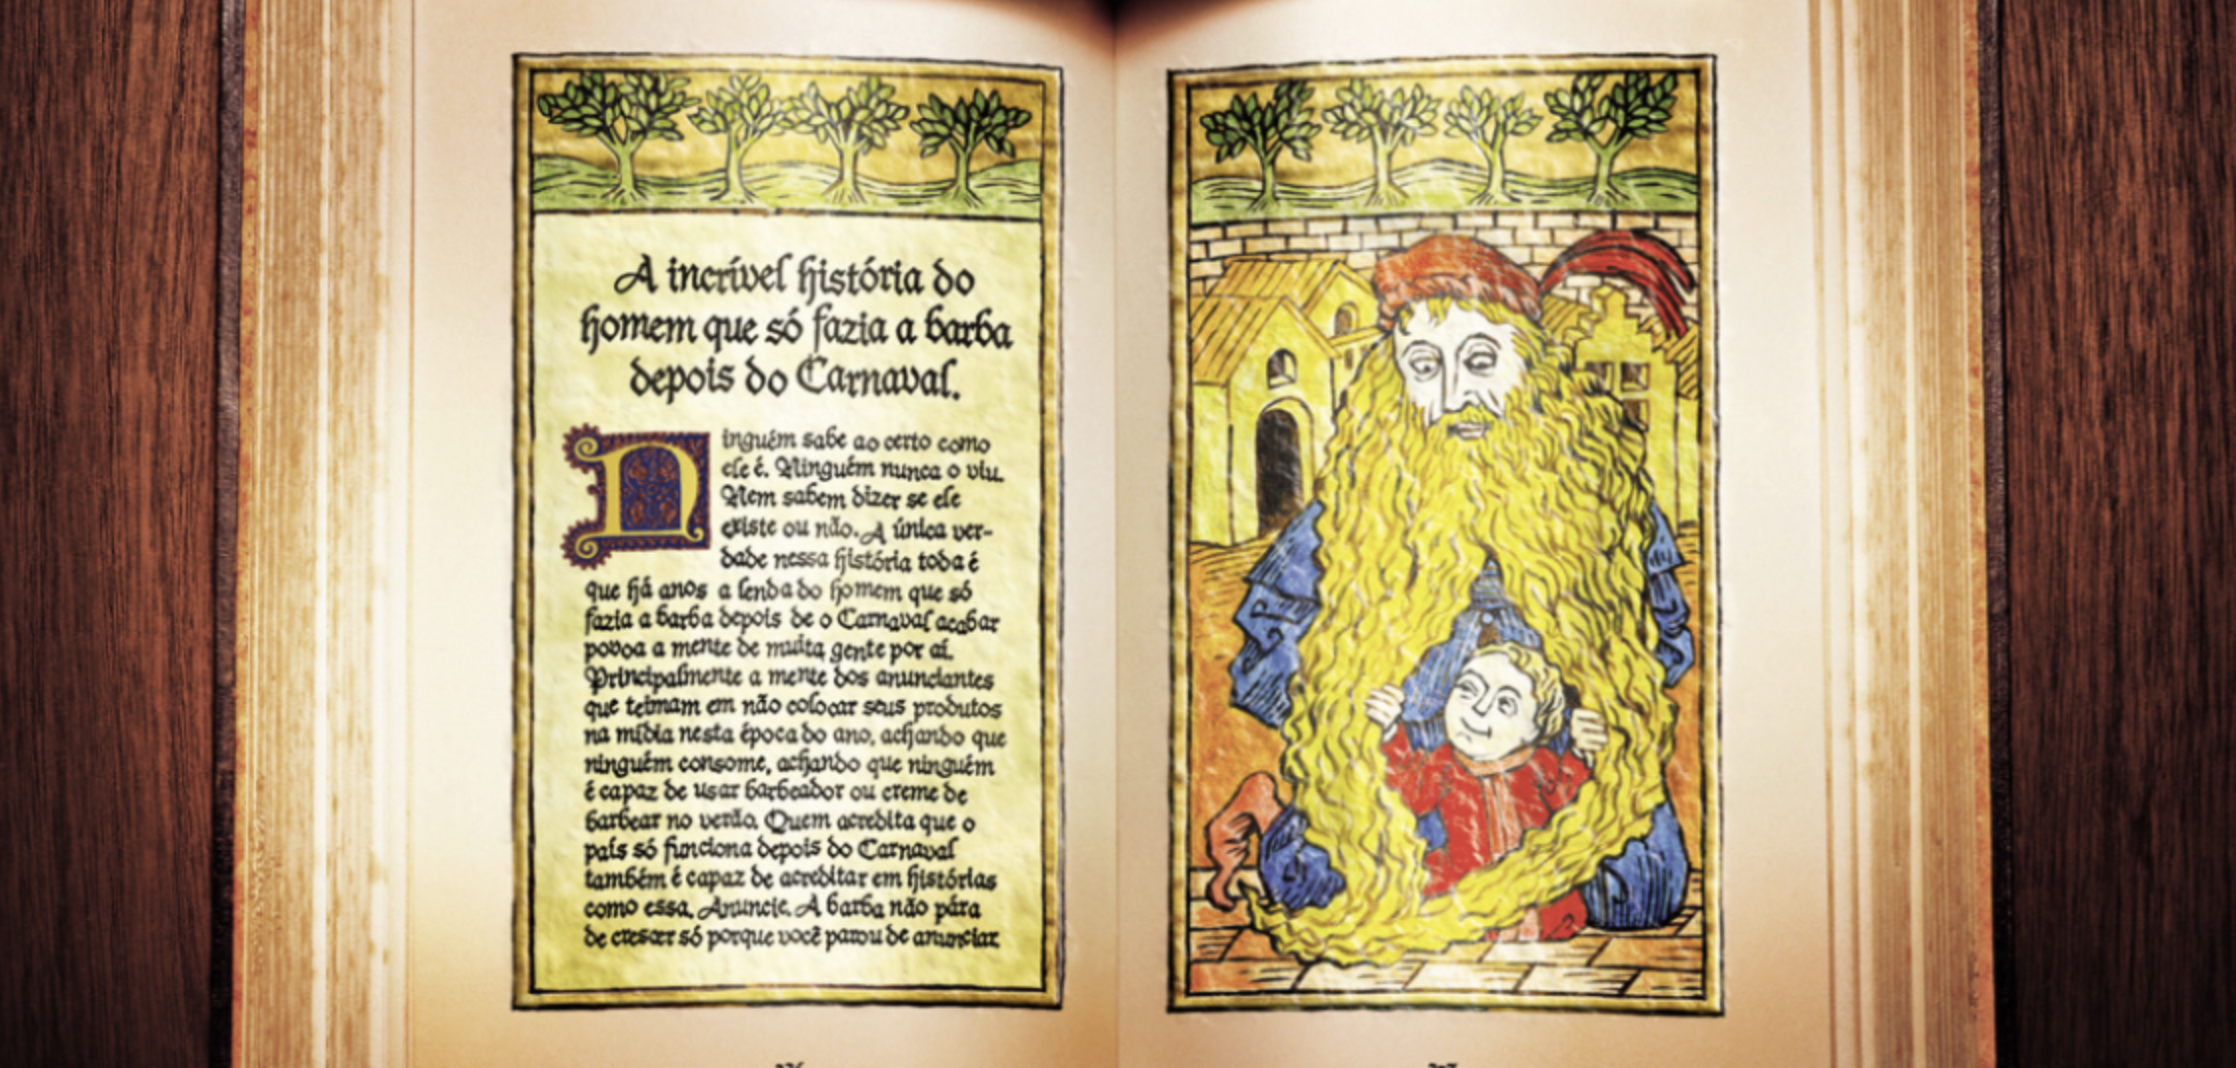 A incrível história do
homem que só fazia a barba
depois do Carnaval.
Ninguém sabe ao certo como
ele é. Ninguém nunca o viu.
Nem sabem dizer se ele
existe ou não. A única ver-
dade nessa história toda é
que há anos a lenda do homem que só
fazia a barba depois de o Carnaval acabar
povoa a mente de muita gente por aí.
Principalmente a mente dos anunciantes
que teimam em não colocar seus produtos
na mídia nesta época do ano, achando que
ninguém consome, achando que ninguém
é capaz de usar barbeador ou creme de
barbear no verão. Quem acredita que o
país só funciona depois do Carnaval
também é capaz de acreditar em histórias
como essa. Anuncie. A barba não pára
de crescer só porque você parou de anunciar.